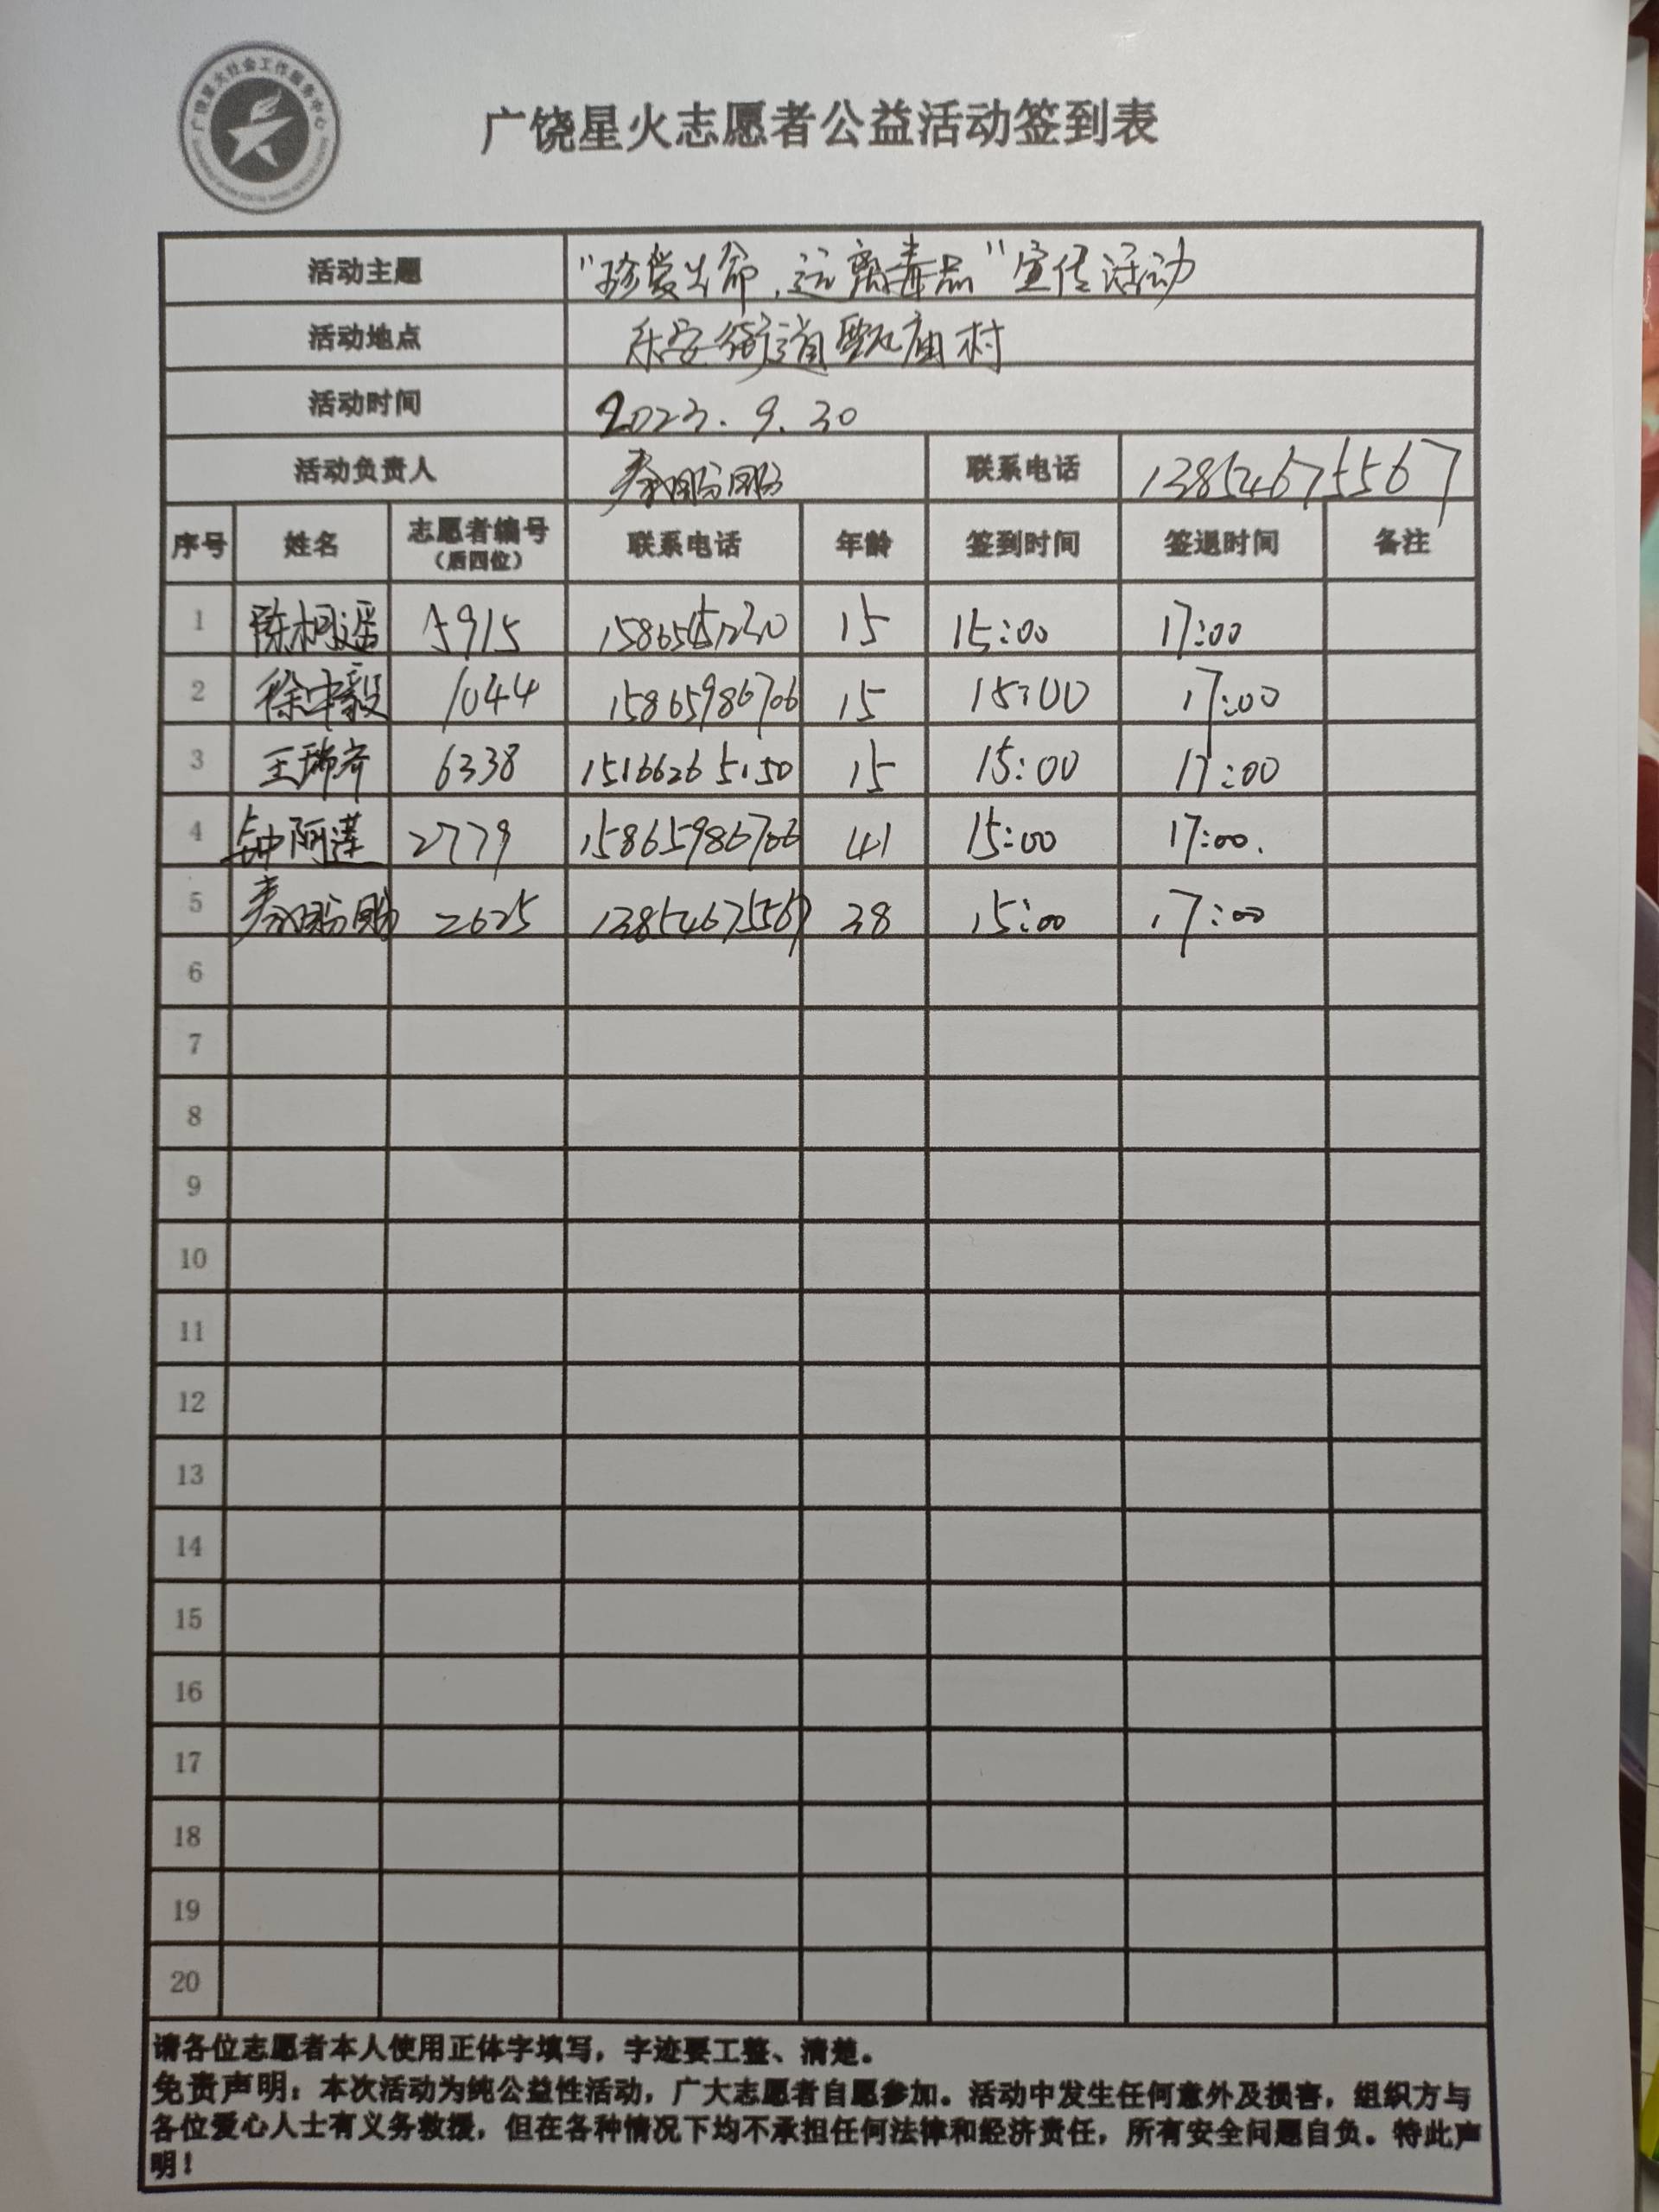 广饶星火社会工作服务中心
广饶星火志愿者公益活动签到表
活动主题 "珍爱生命,远离毒品"宣传活动
活动地点 乐安街道甄庙村
活动时间 2023.9.30
活动负责人 秦盼盼 联系电话 13854675567
序号 姓名 志愿者编号 联系电话 年龄 签到时间 签退时间 备注
(后四位)
1 陈柯遥 5915 15 15:00 17:00
2 徐中毅 1044 15865986706 15 15:00 17:00
3 王瑞齐 6338 15166265150 15 15:00 17:00
4 钟阿莲 2779 15865986706 41 15:00 17:00.
5 秦盼盼 2625 13854675567 38 15:00 17:00
6
7
8
9
10
11
12
13
14
15
16
17
18
19
20
请各位志愿者本人使用正体字填写，字迹要工整、清楚。
免责声明：本次活动为纯公益性活动，广大志愿者自愿参加。活动中发生任何意外及损害，组织方与
各位爱心人士有义务救援，但在各种情况下均不承担任何法律和经济责任，所有安全问题自负。特此声
明！